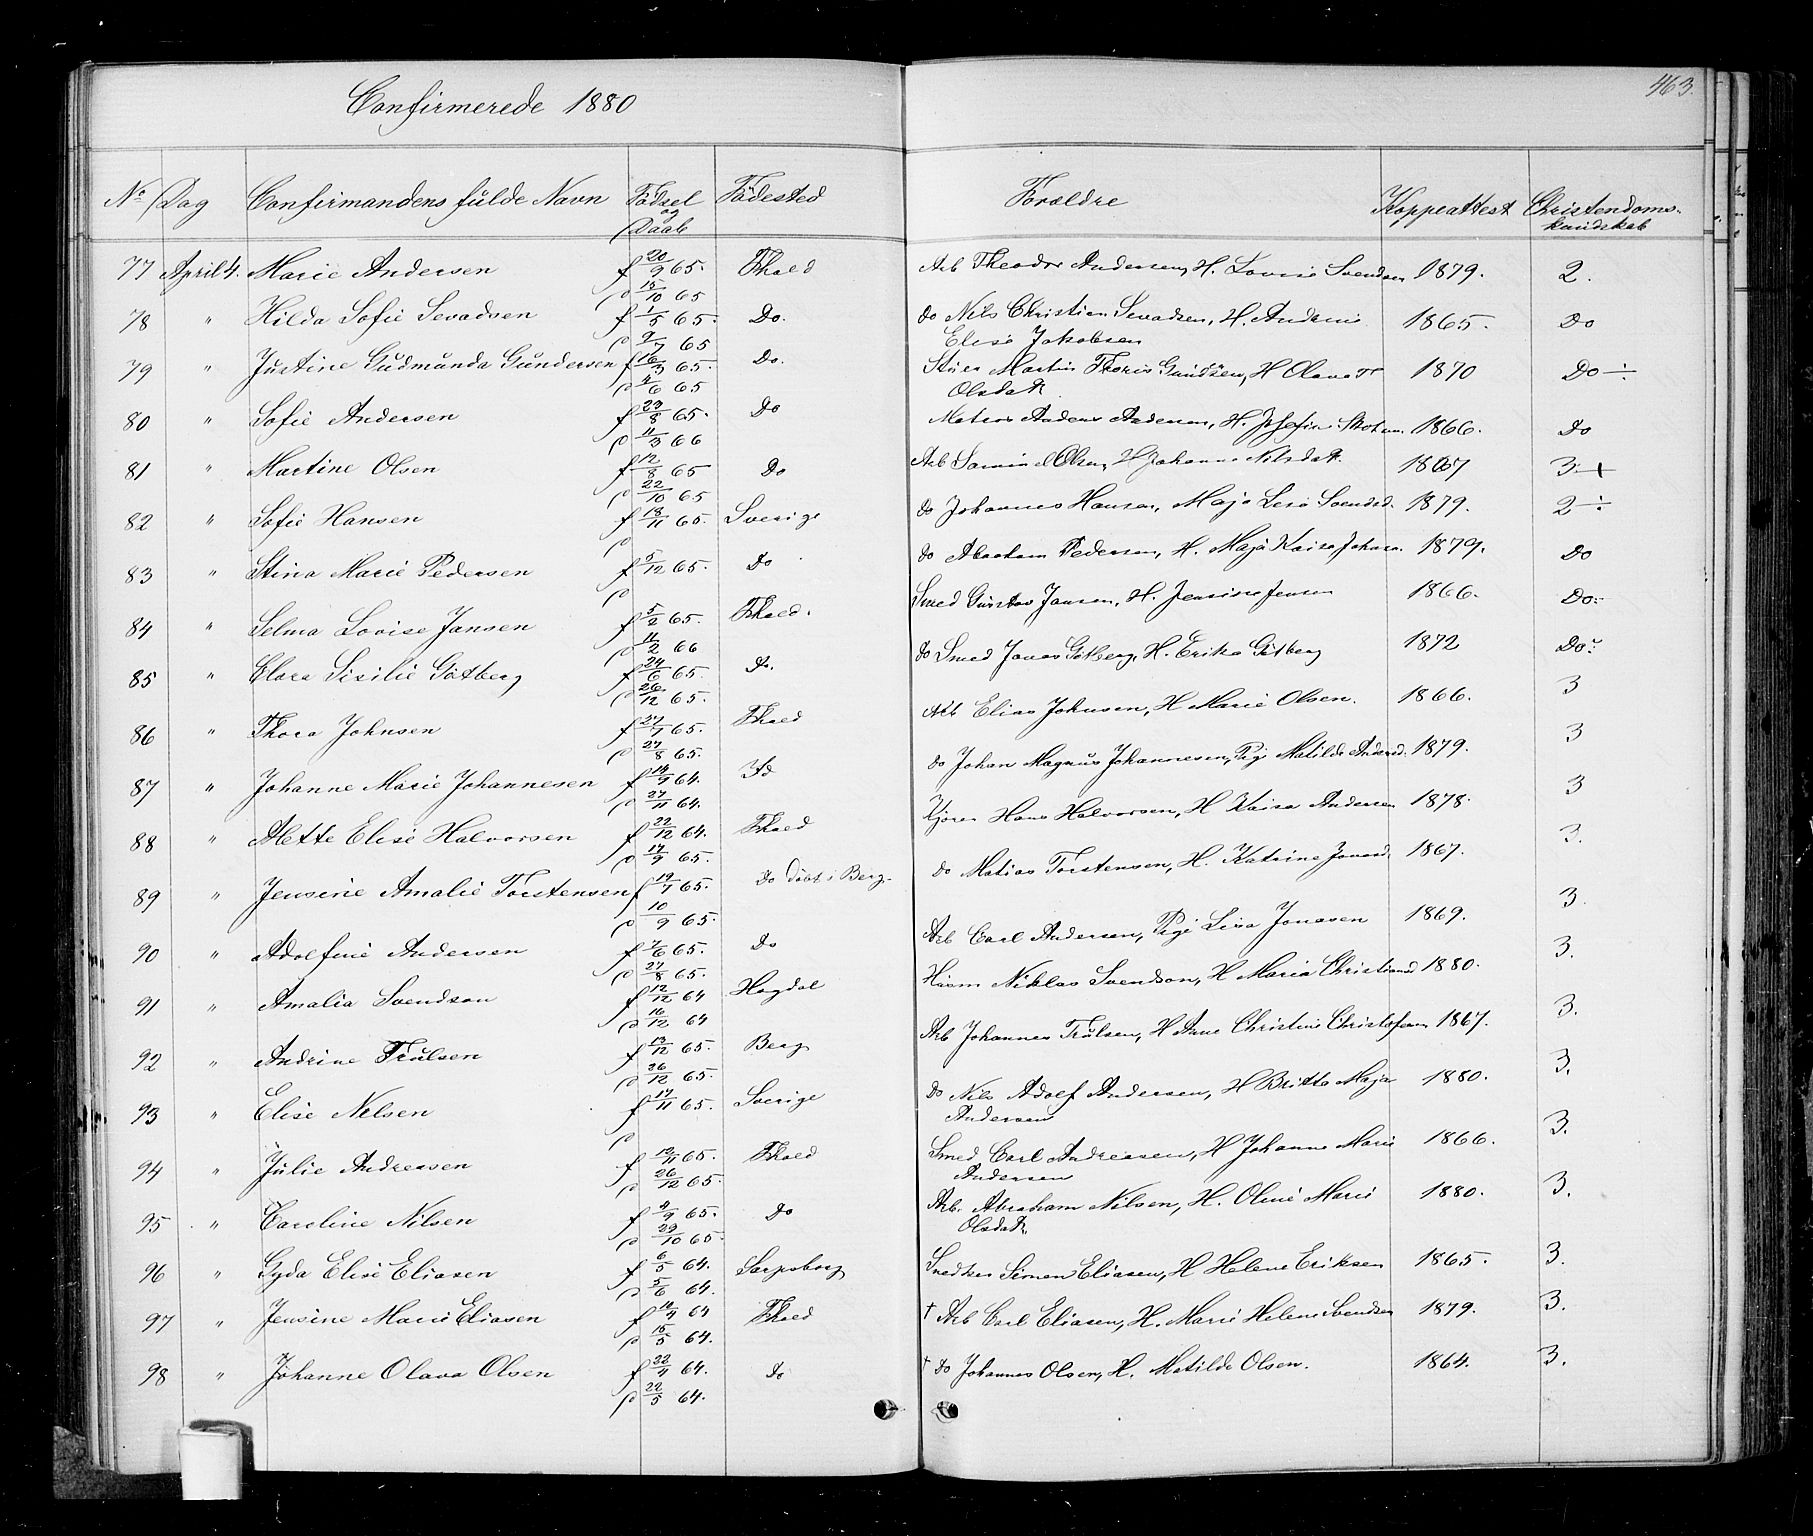 Confirmerede 1880
463.
No Dag Confirmandens fulde Navn Födsel og Daab Födested Forældre Koppeattest Christendoms-
kundskab
77 April 4. Marie Andersen f 20/9 65. Fhald Arb Theodor Andersen, H. Lovise Svendsen 1879. 2.
d 15/10 65
78 " Hilda Sofie Sevadsen f 1/5 65. Do. do Nils Christian Sevadsen, H. Andrine 1865. Do
d 2/7 65 Elise Jakobsen
79 " Justine Gudmunda Gundersen f 16/3 65. Do. Martin Gundsen, H Olava 1870 Do ÷
d 4/6 65 Olsdatt
80 " Sofie Andersen f 23/8 65. Do Matros Anders Andersen, H. Josefine 1866. Do
d 11/3 66
81 " Martine Olsen f 12/8 65 Do Arb Samuel Olsen, H Johanne Nilsdatt. 1867 3 +
d 22/10 65
82 " Sofie Hansen f 18/11 65. Sverige do Johannes Hansen, Maja Lisa Svendsd. 1879. 2 ÷
d
83 " Stina Marie Pedersen f 5/12 65. Do do Abraham Pedersen, H. Maja Kaisa Johans. 1879. Do
d
84 " Selma Lovise Jansen f 5/2 65. Fhald. Smed Gustav Jansen, H. Jensine Jensen 1866. Do-
d 11/2 66
85 " Clara Sisilie Götberg f 24/6 65. Do. do Smed Jonas Götberg, H. Erika Götberg 1872 Do
d 26/12 65.
86 " Thora Johnsen f 27/7 65. Fhald Arb Elias Johnsen, H Marie Olsen. 1866. 3
d 27/8 65.
87 " Johanne Marie Johannesen f 14/9 64. Id do Johan Magnus Johannesen, Pig Matilde Andersd. 1879. 3
d 27/11 64.
88 " Mette Elise Halvorsen f 22/12 64. Fhald Kjører Hans Halvorsen, H Kaisa Andersen 1878. 3
d 17/9 65.
89 " Jensine Amalie Torstensen f 19/7 65. Do döbt i Berg. do Matias Torstensen, H. Katrine Jonasd. 1867. 3.
d 10/9 65.
90 " Adolfine Andersen f 7/6 65. Do Arb Carl Andersen, Pige Lisa Jonasen 1869. 3.
d 27/8 65.
91 " Amalia Svendsen f 12/12 64 Hogdal Huusm Niklas Svendsen, H Maria Christiansd 1880. 3.
d 16/12 64
92 " Andrine Trulsen f 13/12 65. Berg Arb Johannes Trulsen, H Anne Christine Christofersen 1867. 3.
d 26/12 65.
93 " Elise Nelsen f 17/11 65. Sverige do Nils Adolf Andersen, H Britta Maja 1880. 3.
d Andersen
94 " Julie Andreasen f 12/11 65. Fhald Smed Carl Andreasen, H Johanne Marie 1866. 3.
d 26/12 65. Andersen
95 " Caroline Nilsen f 2/9 65. Do Arb. Abraham Nilsen, H. Oline Marie 1880. 3.
d 29/10 65. Olsdatt.
96 " Gyda Elise Eliasen f 6/5 64. Sarpsborg Snedker Simon Eliasen, H Helene Eriksen 1865. 3.
d 5/6 64.
97 " Jensine Marie Eliasen f 10/4 64 Fhald † Arb Carl Eliasen, H. Marie Helene Svendsen 1879. 3.
d 15/5 64.
98 " Johanne Olava Olsen f 22/4 64. Do † do Johannes Olsen, H. Matilde Olsen. 1864. 3.
d 22/5 64.